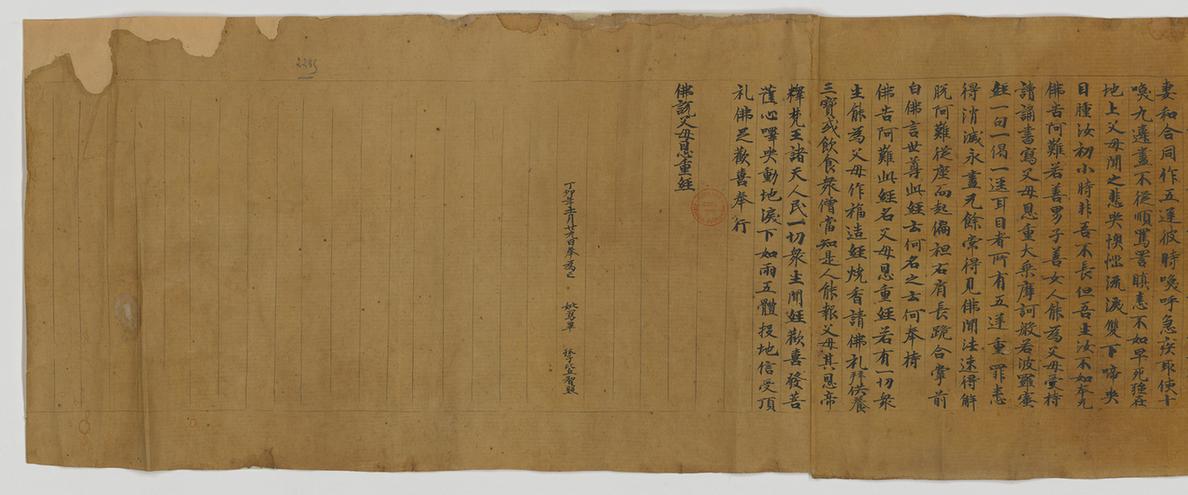 妻和合同作五逆彼時喚呼急疾取使十
喚九違盡不從順罵詈瞋恚不如早死強在
地上父母聞之悲哭懊惱流淚雙下啼哭
目腫汝初小時非吾不長但吾生汝不如本无
佛告阿難若善男子善女人能為父母受持
讀誦書寫父母恩重大乘摩訶般若波羅蜜
經一句一偈一逕耳目者所有五逆重罪悉
得消滅永盡无餘常得見佛聞法速得解
脫阿難從座而起偏袒右肩長跪合掌前
白佛言世尊此經云何名之云何奉持
佛告阿難此經名父母恩重經若有一切衆
生能為父母作福造經燒香請佛礼拜供養
三寶或飲食衆僧當知是人能報父母其恩帝
釋梵王諸天人民一切衆生聞經歡喜發菩
薩心嘷哭動地淚下如雨五體投地信受頂
礼佛足歡喜奉行
佛說父母恩重經
丁卯年十一月廿九日奉為亡 妣寫畢 孫
2285